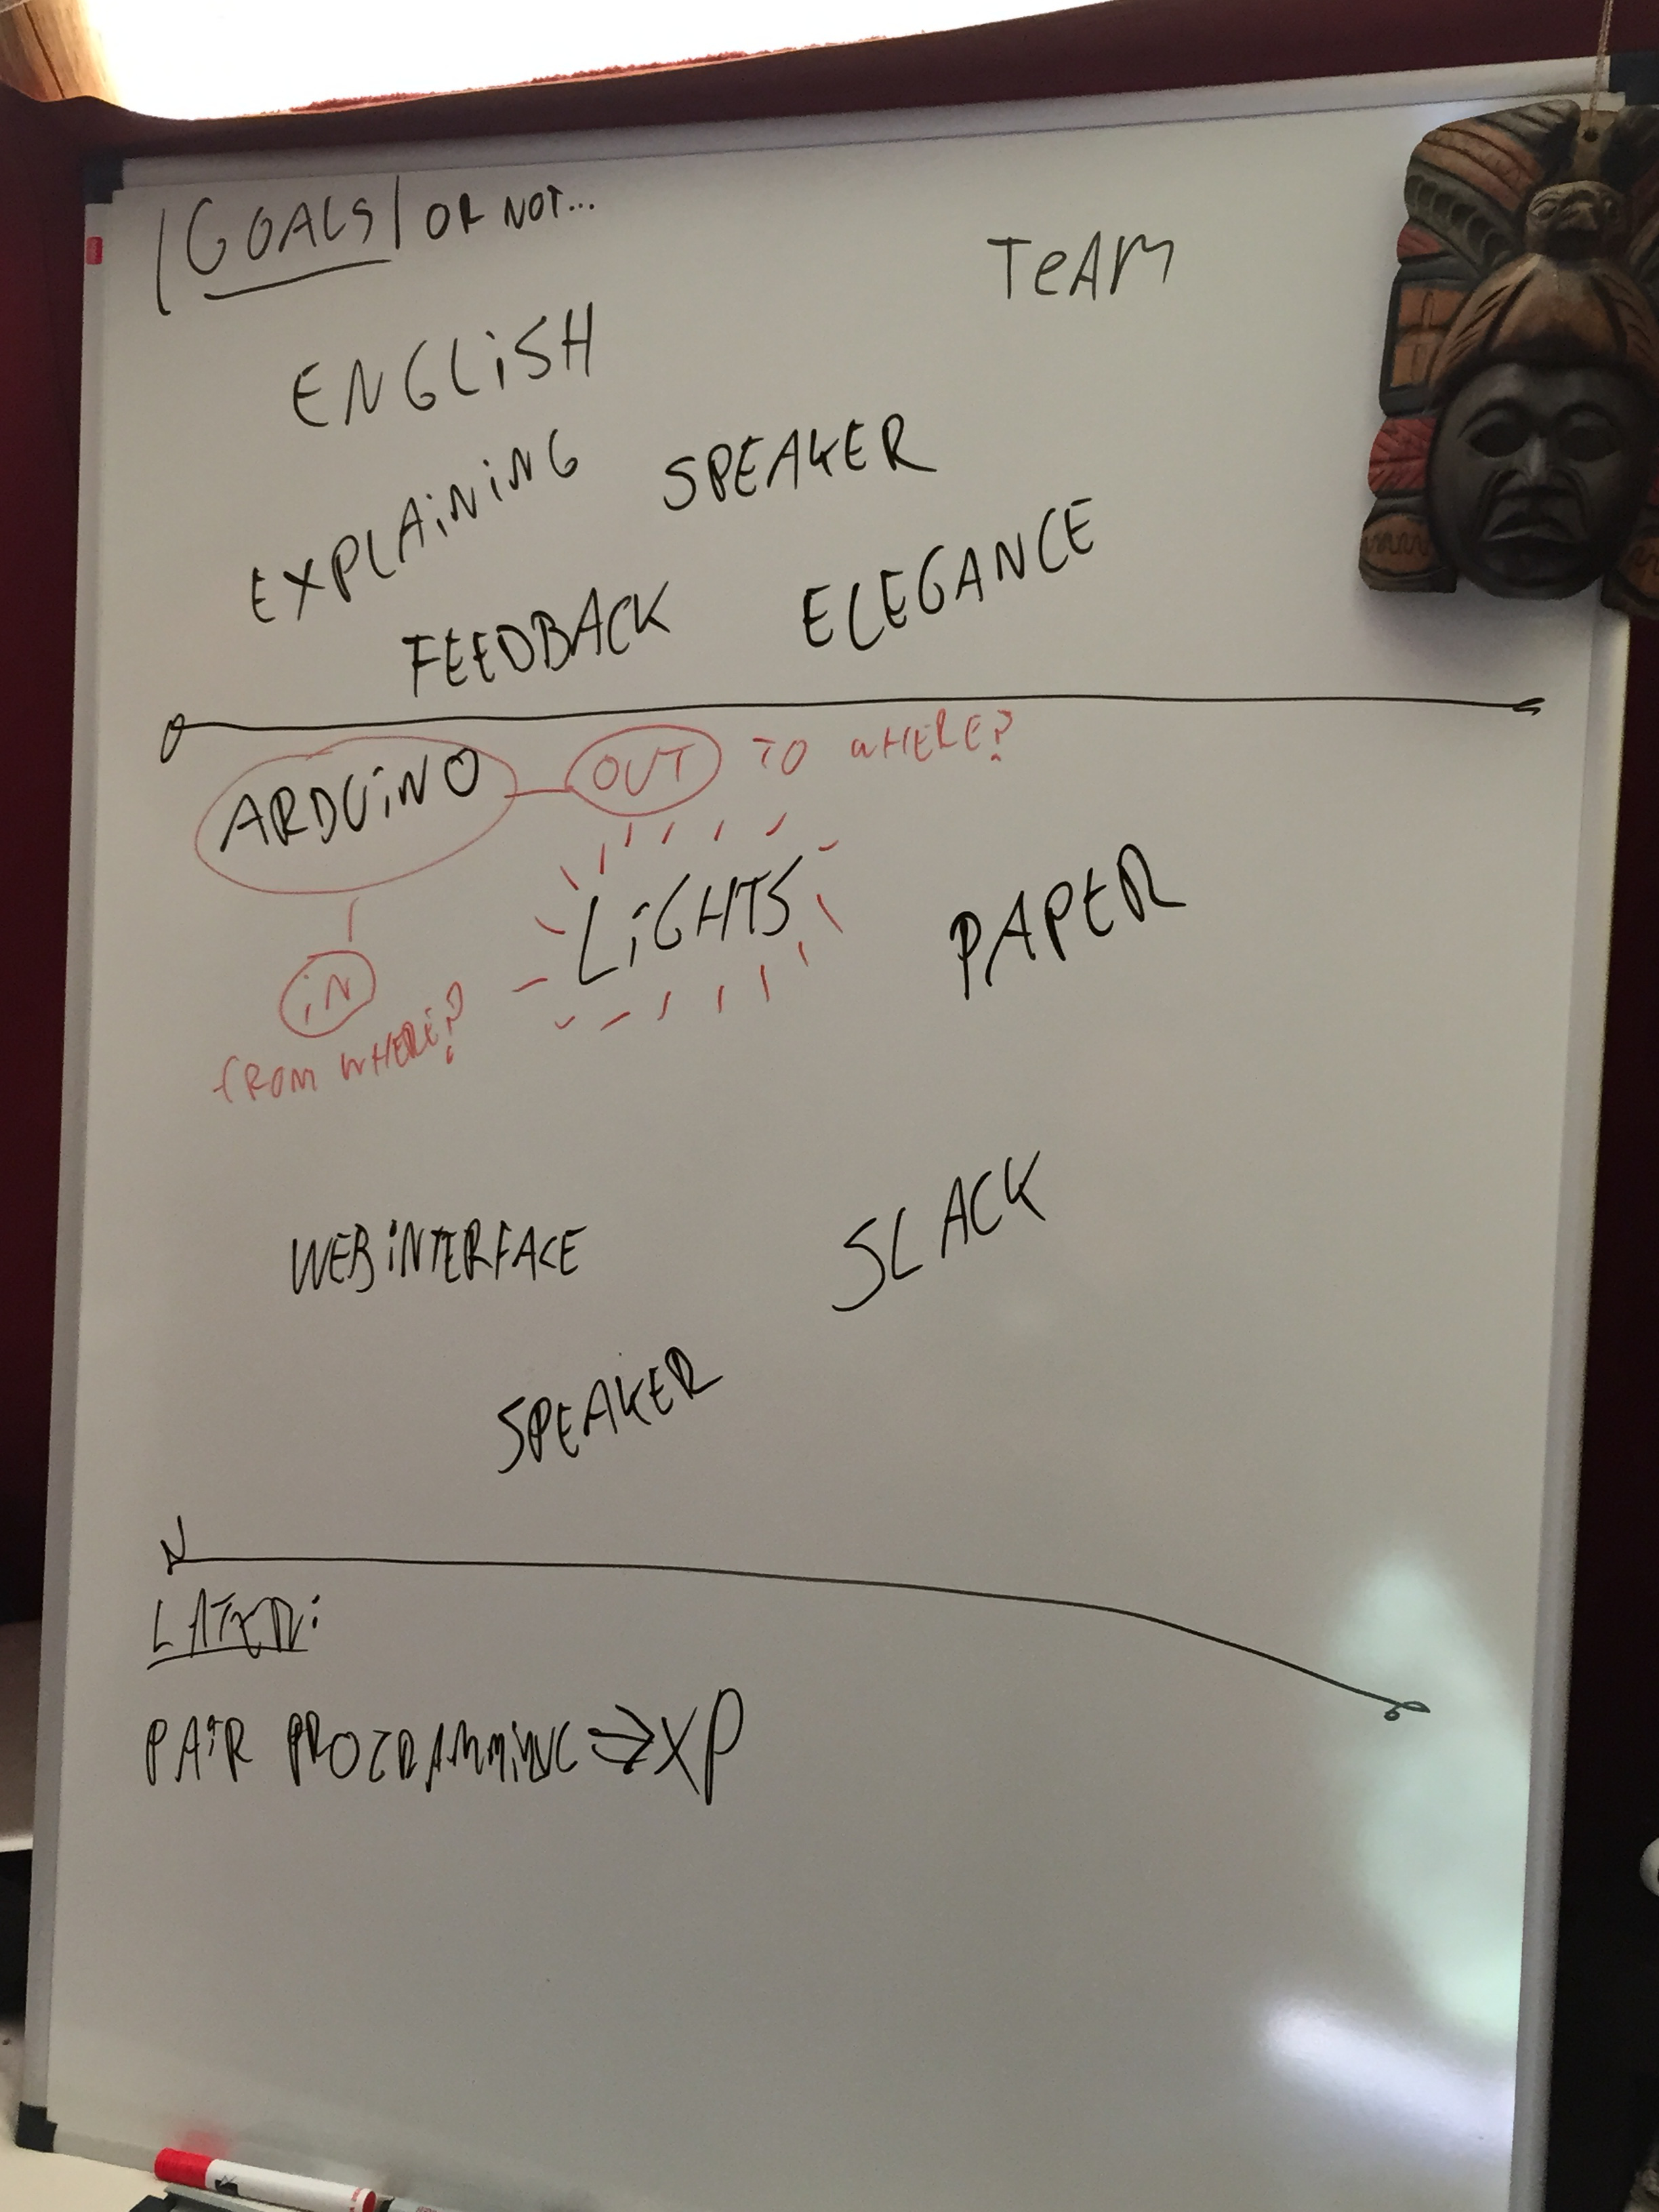 GOALS OR NOT...
TEAM
ENGLISH
EXPLAINING SPEAKER
FEEDBACK ELEGANCE
ARDUINO OUT TO WHERE?
LIGHTS PAPER
IN
FROM WHERE?
WEBINTERFACE SLACK
SPEAKER
LATER:
PAIR PROGRAMMING ⇒ XP